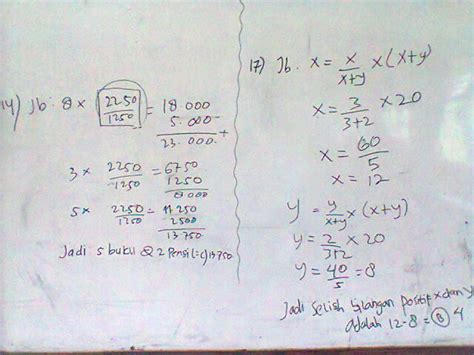 14) Jb: 8 × 2250/1250 = 18.000
5.000 +
23.000.
3 × 2250/1250 = 6750
1250
8000
5 × 2250/1250 = 11250
2500
13750
Jadi 5 buku & 2 Pensil = c) 13750
17) Jb. x = x/x+y × (x+y)
x = 3/3+2 × 20
x = 60/5
x = 12
y = y/x+y × (x+y)
y = 2/3+2 × 20
y = 40/5 = 8
Jadi Selisih bilangan Positif x dan y
adalah 12-8 = B 4